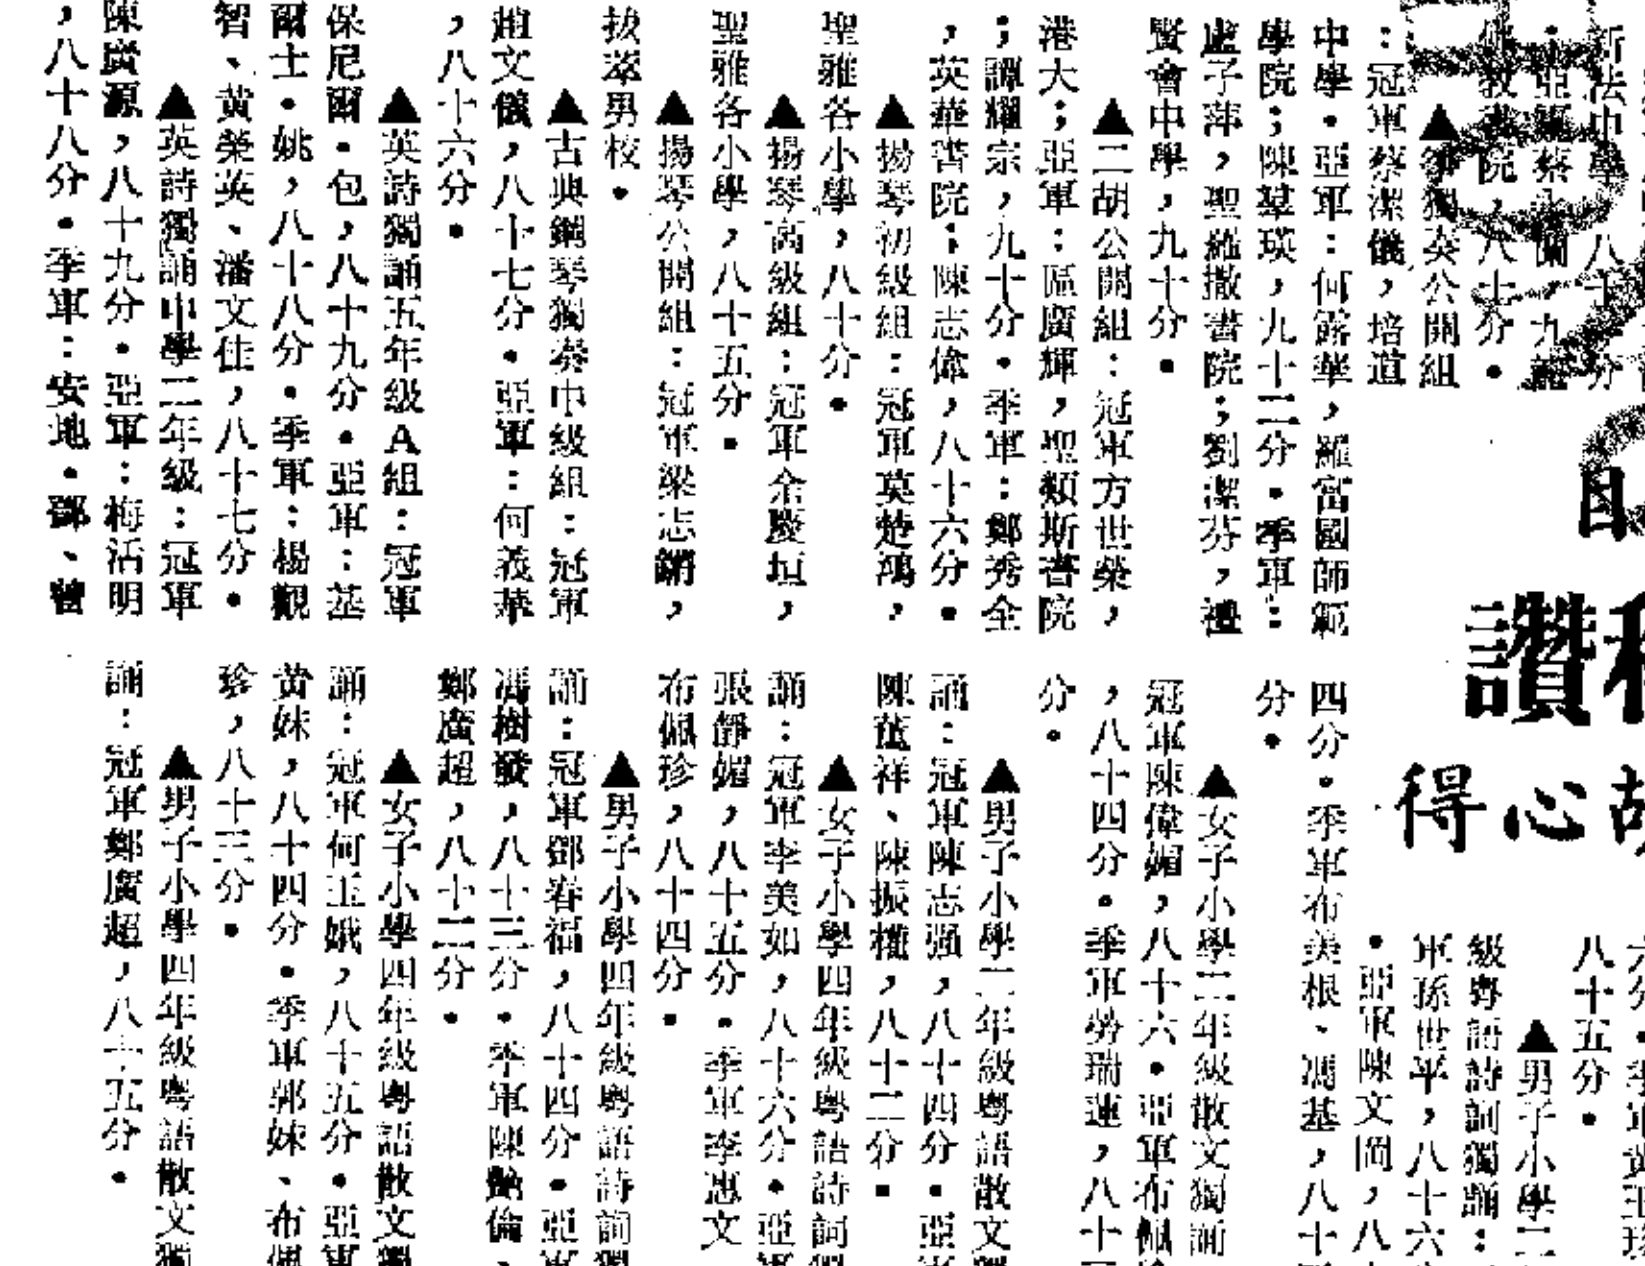 ▲箏獨奏公開組
：冠軍蔡潔儀，培道
中學・亞軍：何露華，羅富國師範
學院；陳瑛，九十二分・季軍：
盧子萍，聖羅撒書院；劉潔芬，禮
賢會中學，九十分・
▲二胡公開組：冠軍方世榮，
港大；亞軍：區廣輝，聖類斯書院
；譚耀宗，九十分・季軍：鄭秀全
，英華書院；陳志偉，八十六分・
▲揚琴初級組：冠軍莫楚鴻，
聖雅各小學，八十分・
▲揚琴高級組：冠軍余慶垣，
聖雅各小學，八十五分・
▲揚琴公開組：冠軍梁志鏘，
拔萃男校・
▲古典鋼琴獨奏中級組：冠軍
趙文儀，八十七分・亞軍：何義華
，八十六分・
▲英詩獨誦五年級A組：冠軍
保尼爾・包，八十九分・亞軍：基
爾士・姚，八十八分・季軍：楊觀
智、黃榮英、潘文佳，八十七分・
▲英詩獨誦中學二年級：冠軍
陳廣源，八十九分・亞軍：梅活明
，八十八分・季軍：安地・鄧、曾
讚
心得
八十五分・
▲男子小學二
級粵語詩詞獨誦：
軍孫世平，八十六
・亞軍陳文岡，八
四分・季軍布美根、馮基，八十
分・
▲女子小學二年級散文獨誦
冠軍陳偉媚，八十六・亞軍布佩
，八十四分・季軍勞瑞蓮，八十
分・
▲男子小學二年級粵語散文
誦：冠軍陳志强，八十四分・亞
陳祥、陳振權，八十二分・
▲女子小學四年級粵語詩詞
誦：冠軍李美如，八十六分・亞
張靜媚，八十五分・季軍李惠文
布佩珍，八十四分・
▲男子小學四年級粵語詩詞
誦：冠軍鄧春福，八十四分・亞
馮樹發，八十三分・季軍陳艷倫
鄭廣超，八十二分・
▲女子小學四年級粵語散文
誦：冠軍何玉娥，八十五分・亞
黃妹，八十四分・季軍郭妹、布佩
珍，八十三分・
▲男子小學四年級粵語散文獨
誦：冠軍鄭廣超，八十五分・